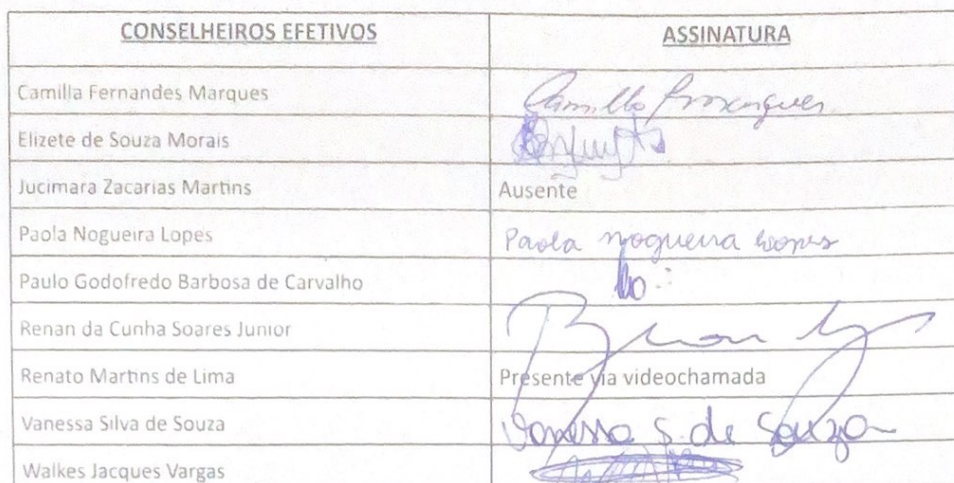 CONSELHEIROS EFETIVOS ASSINATURA
Camilla Fernandes Marques
Elizete de Souza Morais
Jucimara Zacarias Martins Ausente
Paola Nogueira Lopes Paola Nogueira Lopes
Paulo Godofredo Barbosa de Carvalho
Renan da Cunha Soares Junior
Renato Martins de Lima Presente via videochamada
Vanessa Silva de Souza Vanessa S. de Souza
Walkes Jacques Vargas